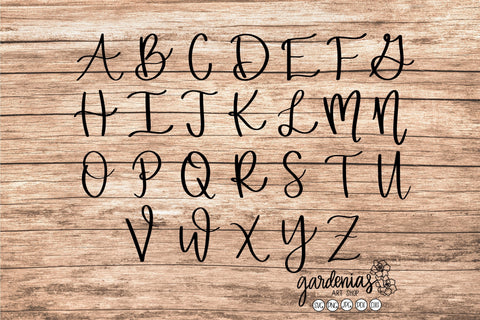 A B C D E F G
H I J K L M N
O P Q R S T U
V W X Y Z
gardenias
ART SHOP
SVG PNG JPG PDF DXF